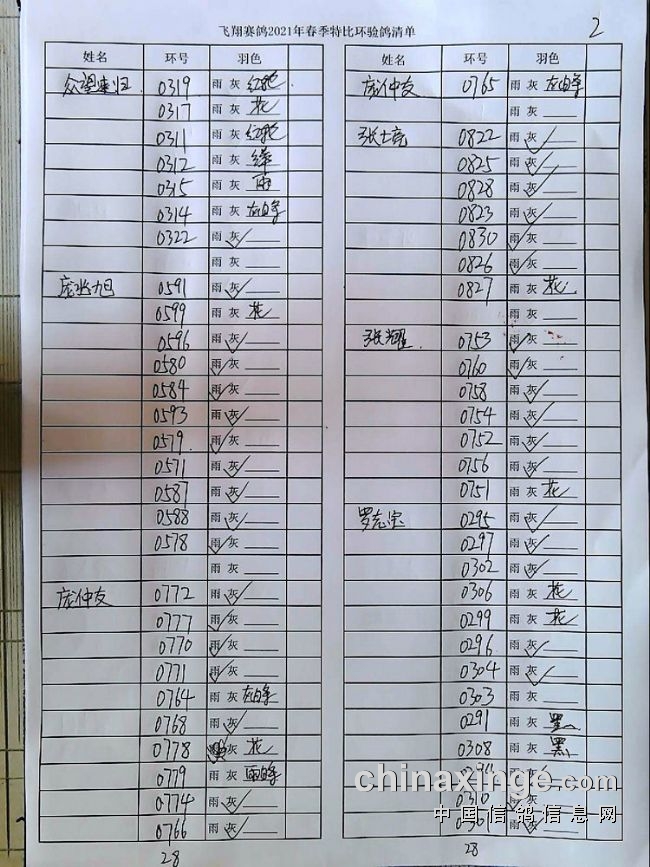 飞翔赛鸽2021年春季特比环验鸽清单
2
姓名 环号 羽色
众望来归 0319 雨 灰 红轮
0317 雨 灰 花
0311 雨 灰 红轮
0312 雨 灰 绛
0315 雨 灰 雨
0314 雨 灰 灰白条
0322 雨 灰
雨 灰
0591 雨 灰
0599 雨 灰 花
0596 雨 灰
0580 雨 灰
0584 雨 灰
0593 雨 灰
0579 雨 灰
0571 雨 灰
0587 雨 灰
0588 雨 灰
0578 雨 灰
雨 灰
庞仲友 0772 雨 灰
0777 雨 灰
0770 雨 灰
0771 雨 灰
0764 雨 灰 灰白条
0768 雨 灰
0778 灰 花
0779 雨 灰 雨白条
0774 雨 灰
0766 雨 灰
28
姓名 环号 羽色
庞仲友 0765 雨 灰 灰白条
雨 灰
张士亮 0822 雨 灰
0825 雨 灰
0828 雨 灰
0823 雨 灰
0830 雨 灰
0826 雨 灰
0827 雨 灰 花
雨 灰
张耀 0753 雨 灰
0760 雨 灰
0758 雨 灰
0754 雨 灰
0752 雨 灰
0756 雨 灰
0751 雨 灰 花
罗志宝 0295 雨 灰
0297 雨 灰
0302 雨 灰
0306 雨 灰 花
0299 雨 灰 花
0296 雨 灰
0304 雨 灰
0303 雨 灰
0291 雨 灰
0308 雨 灰 黑
雨 灰
0310 雨 灰
雨 灰
28
chinaxinge.com
中国信鸽信息网